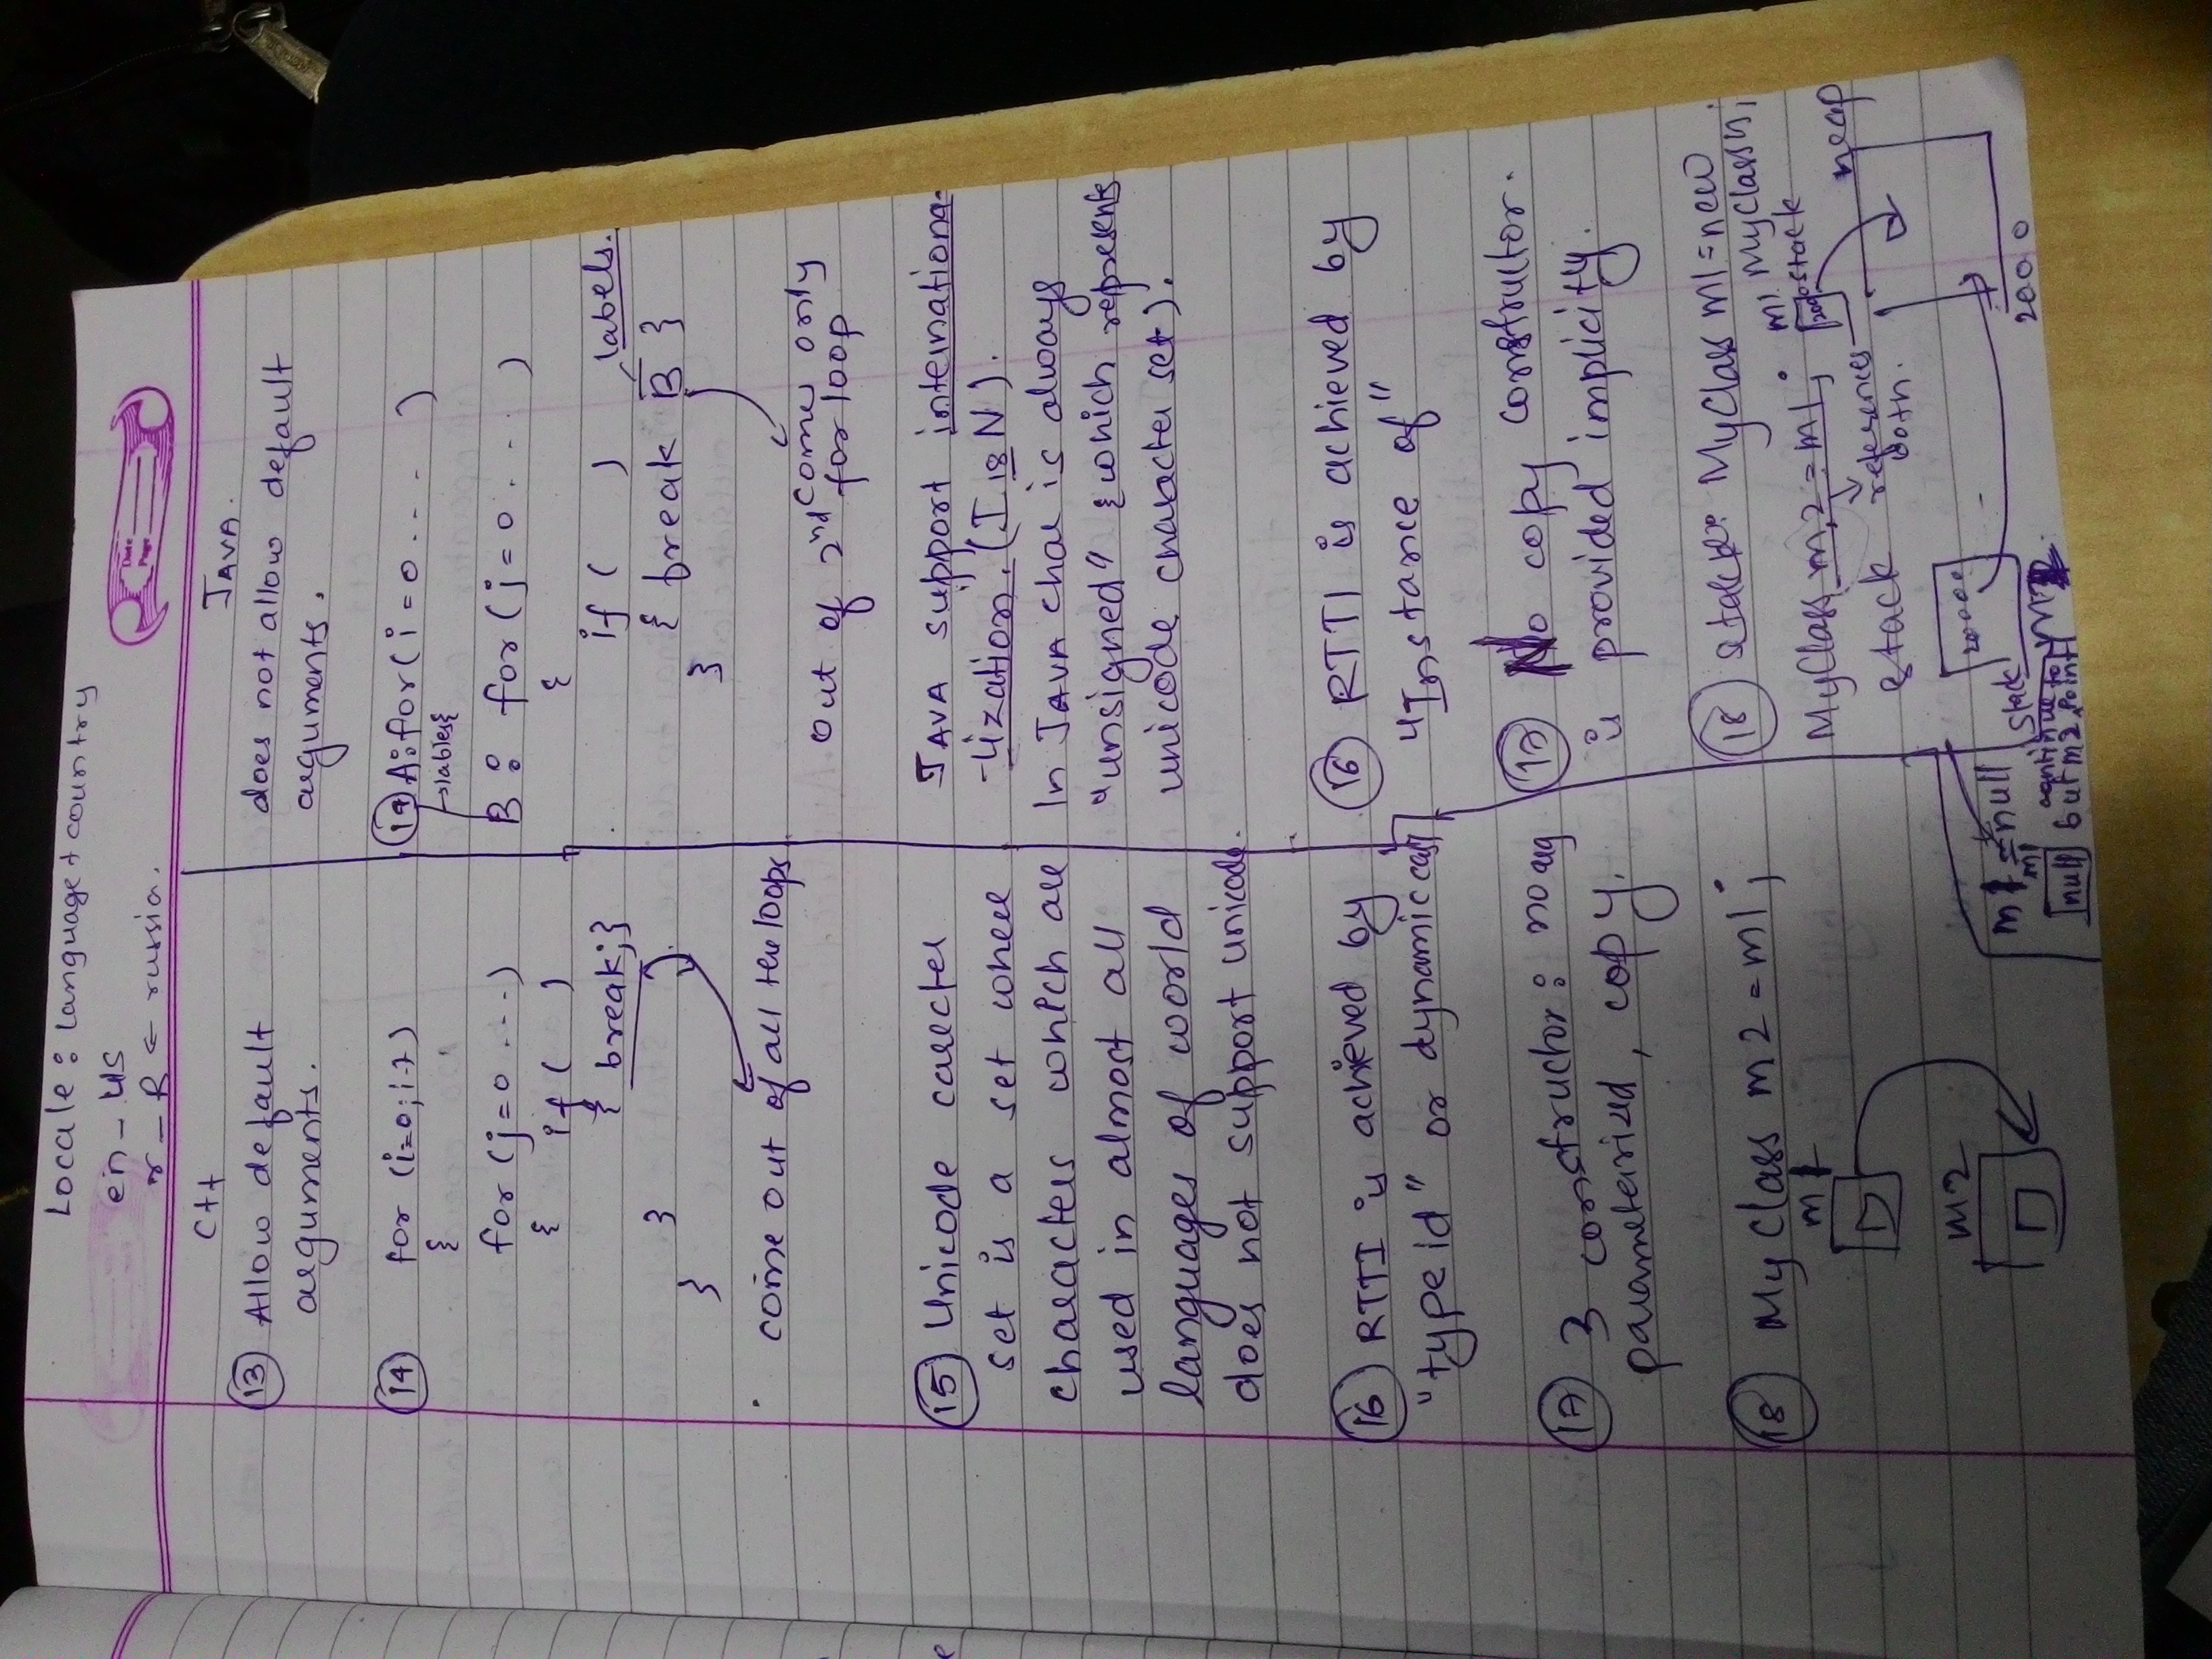 Locale: language + country
en_US
r_R ← russia.
Date
Page
C++
(13) Allow default
arguments.
(14) for (i=0; i-7)
{
for (j=0 ...)
{ if ( )
{ break; }
}
}
come out of all the loops
(15) Unicode carecter
set is a set where
characters which are
used in almost all
languages of world
does not support unicode.
(16) RTTI is achieved by
"typeid" or dynamic cast
(17) 3 constructor: no arg
parameterized, copy.
(18) MyClass m2 = m1;
m1
m2
JAVA.
does not allow default
arguments.
(14) A: for (i=0 ... )
→ lables {
B : for (j=0 ... )
{
if ( ) labels.
{ break B }
}
comes only
out of 2nd for loop
JAVA support internationa-
-lization. (I18N).
In JAVA char is always
"unsigned" {which represents
unicode character set).
(16) RTTI is achieved by
"Instance of"
(17) No copy constructor.
is provided implicity.
(18) MyClass m1 = new
MyClass();
MyClass m2 = m1; m1 2000 stack
stack references both.
heap
20000
2000
stack
m1 = null
m1
null
continue to
but m2 point